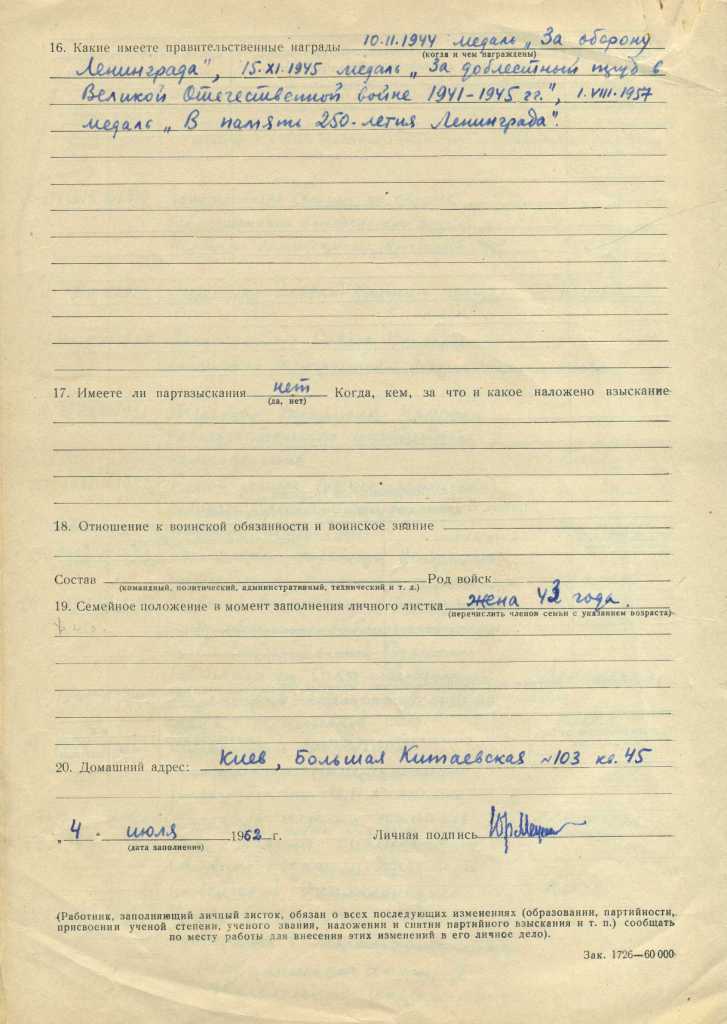 16. Какие имеете правительственные награды 10.II.1944 медаль „За оборону
(когда и чем награждены)
Ленинграда", 15.XI.1945 медаль „За доблестный труд в
Великой Отечественной войне 1941-1945 гг.", 1.VIII.1957
медаль „В память 250-летия Ленинграда".
17. Имеете ли партвзыскания нет Когда, кем, за что и какое наложено взыскание
(да, нет)
18. Отношение к воинской обязанности и воинское звание
Состав Род войск
(командный, политический, административный, технический и т. д.)
19. Семейное положение в момент заполнения личного листка жена 43 года.
(перечислить членов семьи с указанием возраста)
20. Домашний адрес: Киев, Большая Китаевская №103 кв. 45
„4" июля 1962 г. Личная подпись
(дата заполнения)
(Работник, заполняющий личный листок, обязан о всех последующих изменениях (образовании, партийности,
присвоении ученой степени, ученого звания, наложении и снятии партийного взыскания и т. п.) сообщать
по месту работы для внесения этих изменений в его личное дело).
Зак. 1726—60 000